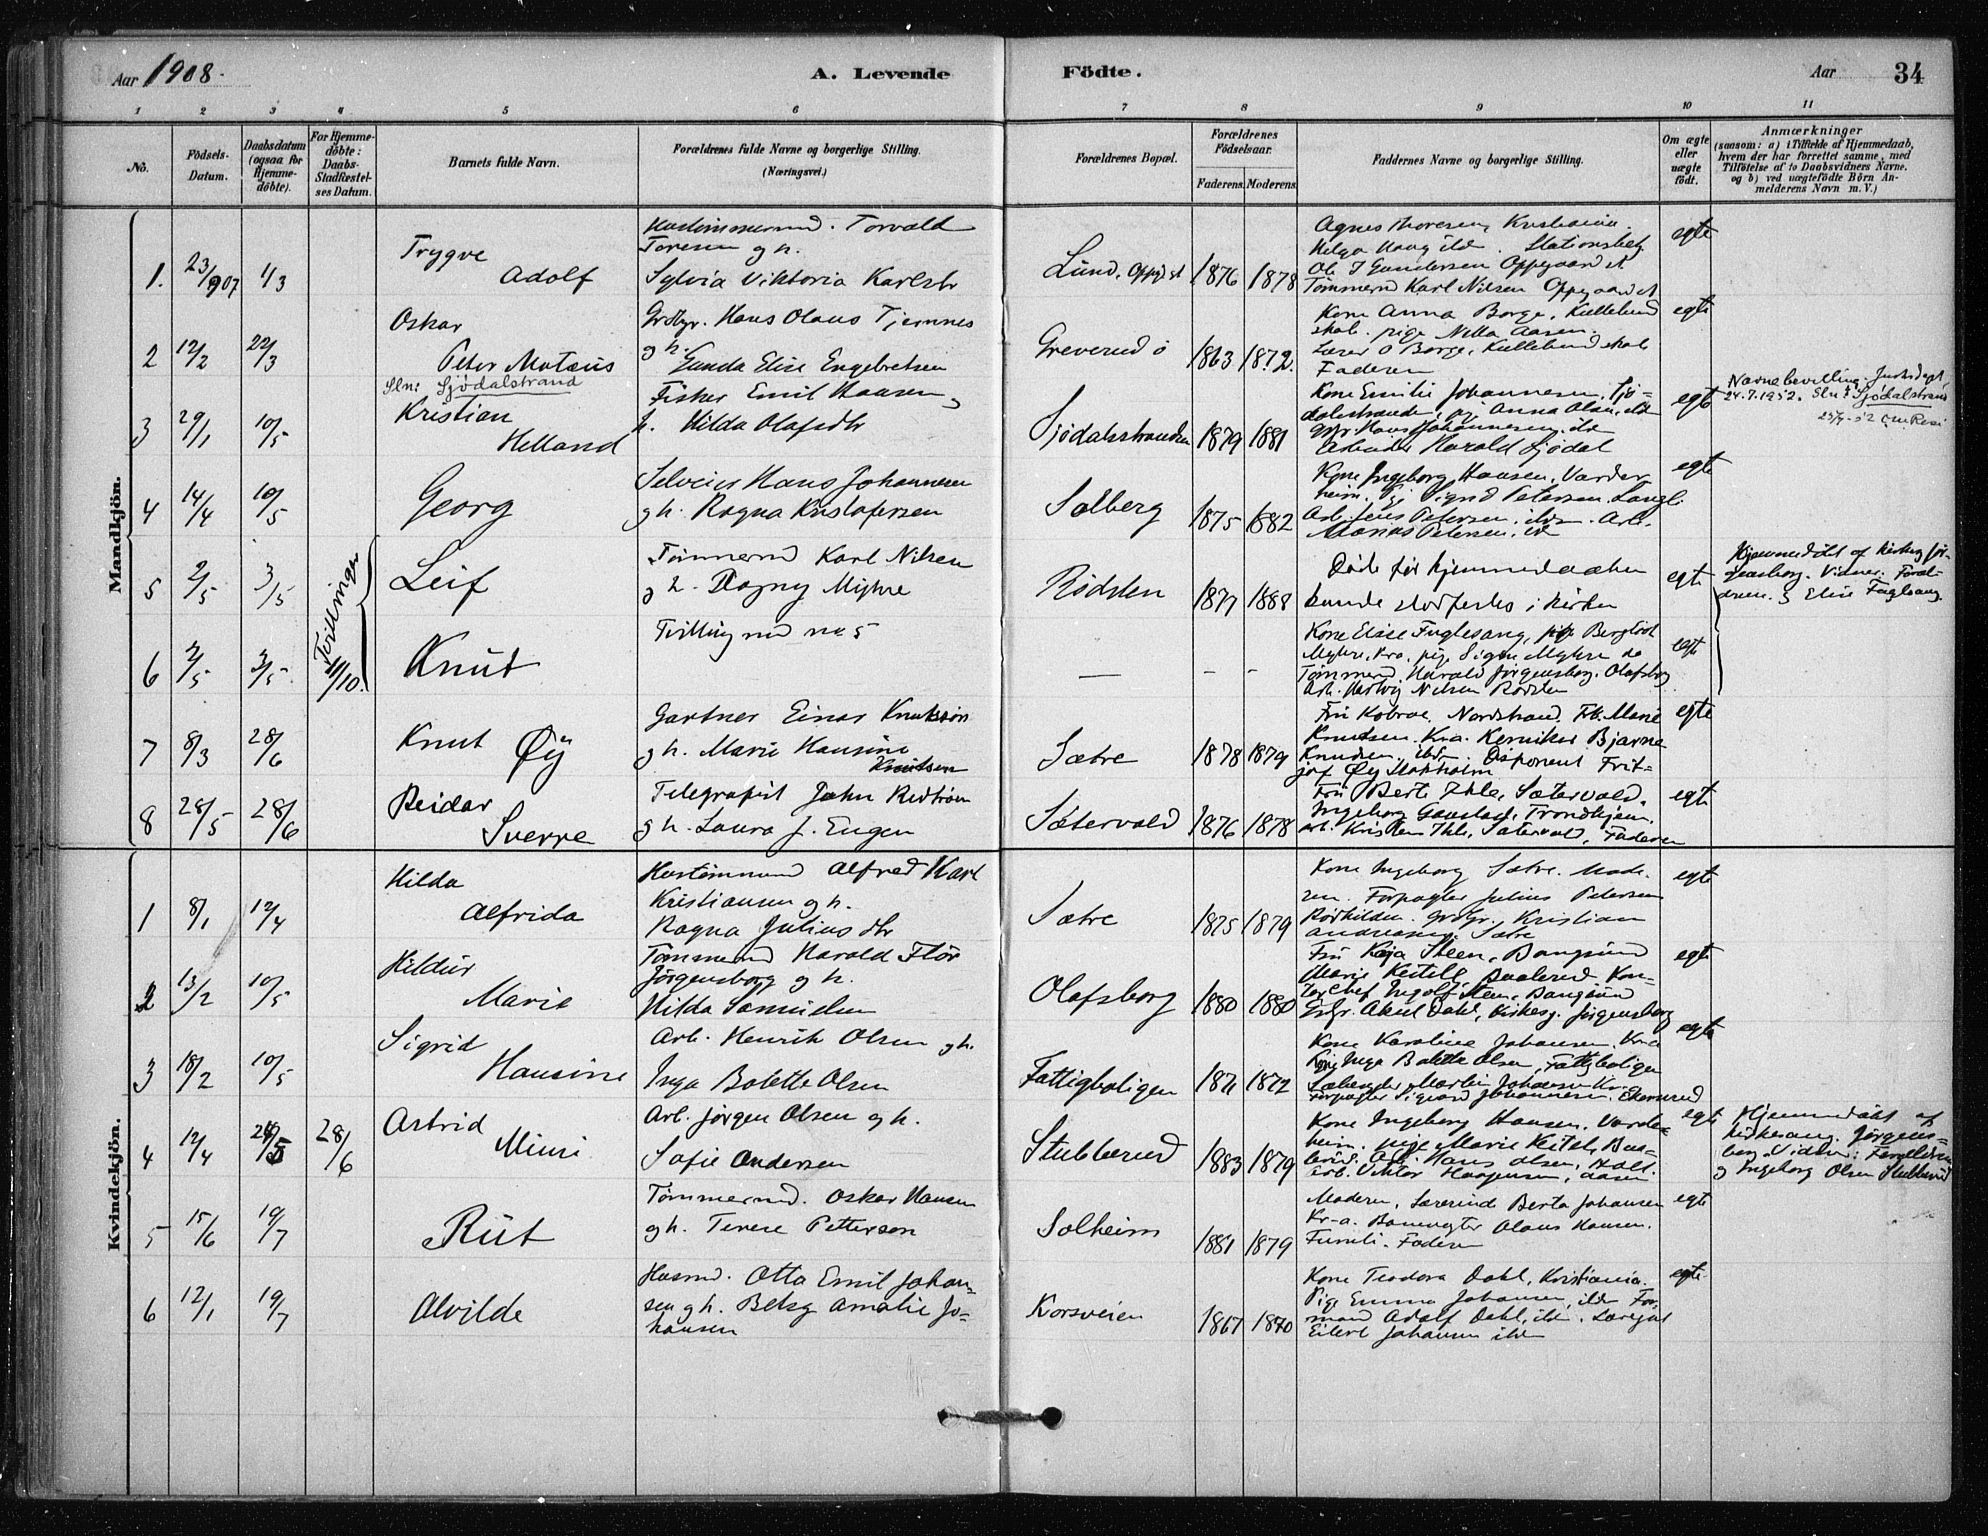 Aar 1908.
A. Levende Födte.
Aar 34
1 2 3 4 5 6 7 8 9 10 11
No.
Födsels-Datum.
Daabsdatum (ogsaa for Hjemme-döbte).
For Hjemme-döbte: Daabs-Stadfæstel-ses Datum.
Barnets fulde Navn.
Forældrenes fulde Navne og borgerlige Stilling. (Næringsvei.)
Forældrenes Bopæl.
Forældrenes Födselsaar.
Faderens. Moderens.
Faddernes Navne og borgerlige Stilling.
Om ægte eller uægte födt.
Anmærkninger
(saasom: a) i Tilfælde af Hjemmedaab,
hvem der har forrettet samme, med
Tilföielse af to Daabsvidners Navne.
og b) ved uægtefödte Börn An-
melderens Navn m. V.)
Mandkjön.
1. 23/907 1/3
Trygve
Adolf
Torvald
Toresen og h.
Sylvia Viktoria Karlsdr
Lund, Oppgd st 1876 1878
Agnes Thoresen, Kristiania
Helga Haug ibd. Stationsbetj
Ole J Gundersen Oppegaard st
Tømmermd Karl Nilsen Oppegaard st
egte
2 12/2 22/3
Oskar
Peter Mateus
Grdbr. Hans Olaus Tjernnes
og h.
Gunda Elise Engebretsen
Greverud ø 1863 1872.
Kone Anna Borge, Kullebund
skole. pige Nilla Aasen.
Lærer O Borge, Kullebund skole
Faderen
egte
3 29/1 10/5
Sln: Sjödalstrand
Kristian
Helland
Fisker Emil Hansen og
h. Hilda Olafsdtr
Sjödalsstranden 1879 1881
Kone Emilie Johannesen, Sjö-
dalsstranden, pi. Anna Olsen, ibd
Hans Johannesen ibd
Arbeider Harald Sjödal
egte
Navnebevilling Justisdept.
24.7.1952. Sln: Sjödalstrand
4 14/4 10/5
Georg
Selveier Hans Johannesen
og h. Ragna Kristofersen
Solberg 1875 1882
Kone Ingeborg Hansen, Varder-
heim. Pi Sigrid Petersen Langli
Arb. Jens Petersen, ibd. Arb.
Petersen, ibd
egte
5 2/5 3/5
Tvillinger
Leif
Tømmermd Karl Nilsen
og h. Dagny Myhre
Rödsten 1877 1888
Döde för hjemmedaaben
kunde stadfestes i kirken
egte
Hjemmedöbt af kirkesg Jör-
gensborg. Vidner: Foræl-
drene. og Elise Fuglsang.
6 2/5 3/5. 11/10.
Knut
Tvilling med no 5
— – –
Kone Elise Fuglesang, pige Bergliot
Myhre, Kra, pige Signe Myhre do
Tømmermd. Harald Jörgensborg. Olafsborg
Arb. Hartvig Nilsen Rödsten
egte
7 8/3 28/6
Knut Öy
Gartner Einar Knutssön
og h. Marie Hansine
Knutsen
Sætre 1878 1879
Fru Kobroe, Nordstrand. Frk. Marie
Knutsen. Kra. Kemiker Bjarne
Knudsen, ibd. Disponent Frit-
jof Öy Stokholm
egte
8 28/5 28/6
Reidar
Sverre
Telegrafist John Redtröm
og h. Laura J. Engen
Sætervold 1876 1878
Fru Berte Ihle, Sætervold.
Ingeborg Gaustad, Trondhjem,
arb. Kristen Ihle, Sætervold, Faderen
egte
Kvindekjön.
1 8/1 12/4
Hilda
Alfrida
Alfred Karl
Kristiansen og h.
Ragna Juliusdtr
Sætre 1875 1879
Kone Ingeborg Sætre. Mode-
ren. Forpagter Julius Petersen
Kristian
Andreasen, Sætre
egte
2 13/2 10/5
Hildur
Marie
Tømmermd Harald Flor
Jörgensborg og h.
Hilda Samuelsen
Olafsborg 1880 1880
Fru Kaja Steen, Bangsund
Marie Keitell, Kon-
torchef Ingolf Steen, Bangsund
Axel Dahl, Kirkesg. Jörgensborg
egte
3 18/2 10/5
Sigrid
Hansine
Arb. Henrik Olsen og h.
Inga Bolette Olsen
Fattigboligen 1871 1872
Kone Karoline Johansen, Kra
Kone Inga Bolette Olsen, Fattigboligen
Martin Johansen Kra
Forpagter Sigvard Johannesen. Ekornrud
egte
4 12/4 24/5 28/6
Astrid
Mimi
Arb. Jörgen Olsen og h.
Sofie Andersen
Stubberud 1883 1879
Kone Ingeborg Hansen. Varde-
heim. pige Marie Keitel,
Arb. Hans Olsen, Holt.
arb. Viktor Haagensen, Aasen
egte
Hjemmedöbt af
kirkesang. Jörgens-
borg. Vidner: Forældrene
og Ingeborg Olsen Stubberud
5 15/6 19/7
Rut
Tömmermd. Oskar Hansen
og h. Terese Petterson
Solheim 1881 1879
Moderen, Lærerind Berta Johansen
Kr-a. Banevogter Olaus Hansen.
Faderen
egte
6 12/1 19/7
Alvilde
Husmd. Otto Emil Johan-
sen og h. Betsy Amalie Jo-
hansen
Korsveien 1867 1870
Kone Teodora Dahl, Kristiania.
Pige Emma Johansen, ibd. For-
mand Adolf Dahl, ibd.
Eilert Johansen ibd
egte